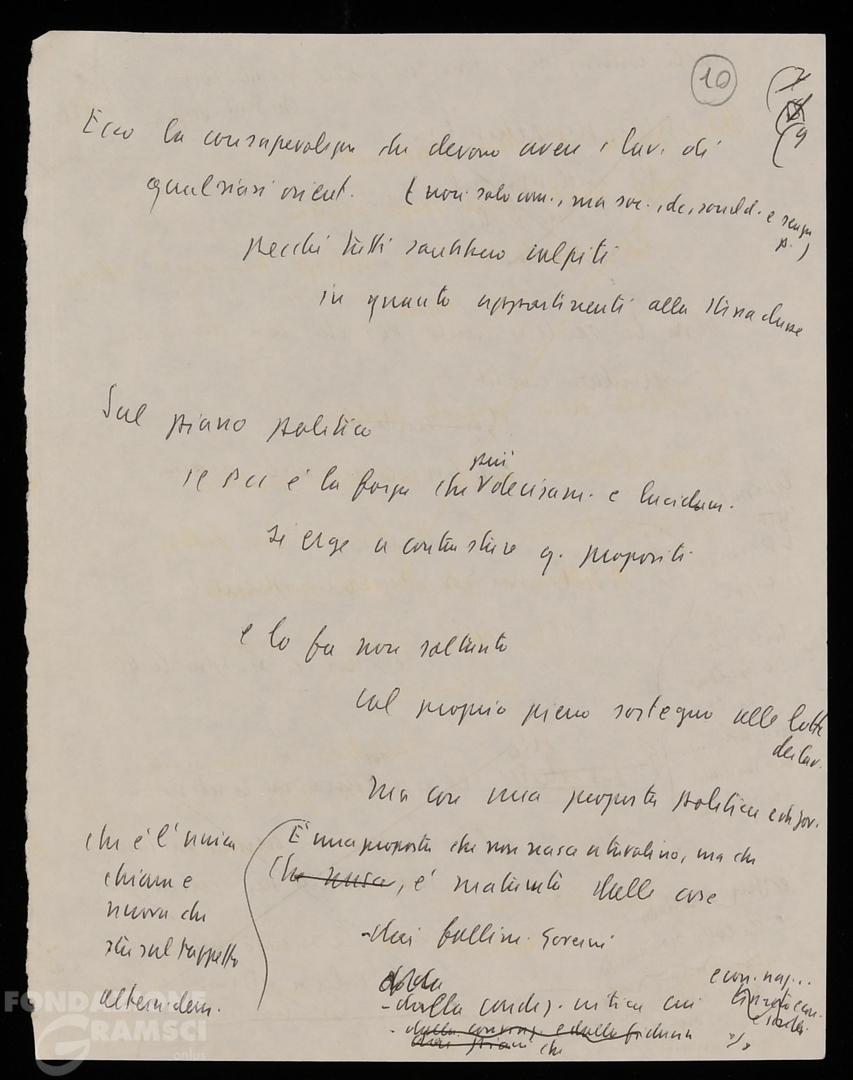 10
9
Ecco la consapevolezza che devono avere i lav. di
qualsiasi orient. (non solo com., ma soc., dc, sociald. e senza
p.)
perché tutti sarebbero colpiti
in quanto appartenenti alla stessa classe
Sul piano politico
il PCI è la forza che più decisam. e lucidam.
si erge a contrastare q. propositi
e lo fa non soltanto
col proprio pieno sostegno alle lotte
dei lav.
ma con una proposta politica e di gov.
che è l'unica
chiara e
nuova che
sta sul tappeto
altern. dem.
È una proposta che non nasce a tavolino, ma che
che nasce, è maturata dalle cose
- dai fallim. governi
- dalla condiz. critica cui
econ. naz...
- dalla
e dalla fiducia
che
FONDAZIONE
GRAMSCI
onlus